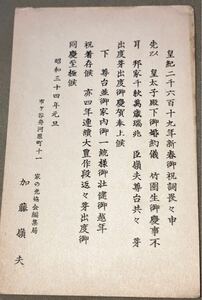 皇紀二千六百十九年新春御祝詞兼々申
先以 皇太子殿下御婚約儀 竹園生御慶事不
耳 邦家千秋萬歳瑞兆 臣嶺夫尊台共々 芽
出度芽出度御慶賀奉上候
下 尊台並御家内御一統様御壮健御越年
祝着存候 亦四年連續大豊作段返々芽出度御
同慶至極候
昭和三十四年元旦
市ヶ谷舟河原町十一
家の光協会編集局
加藤嶺夫